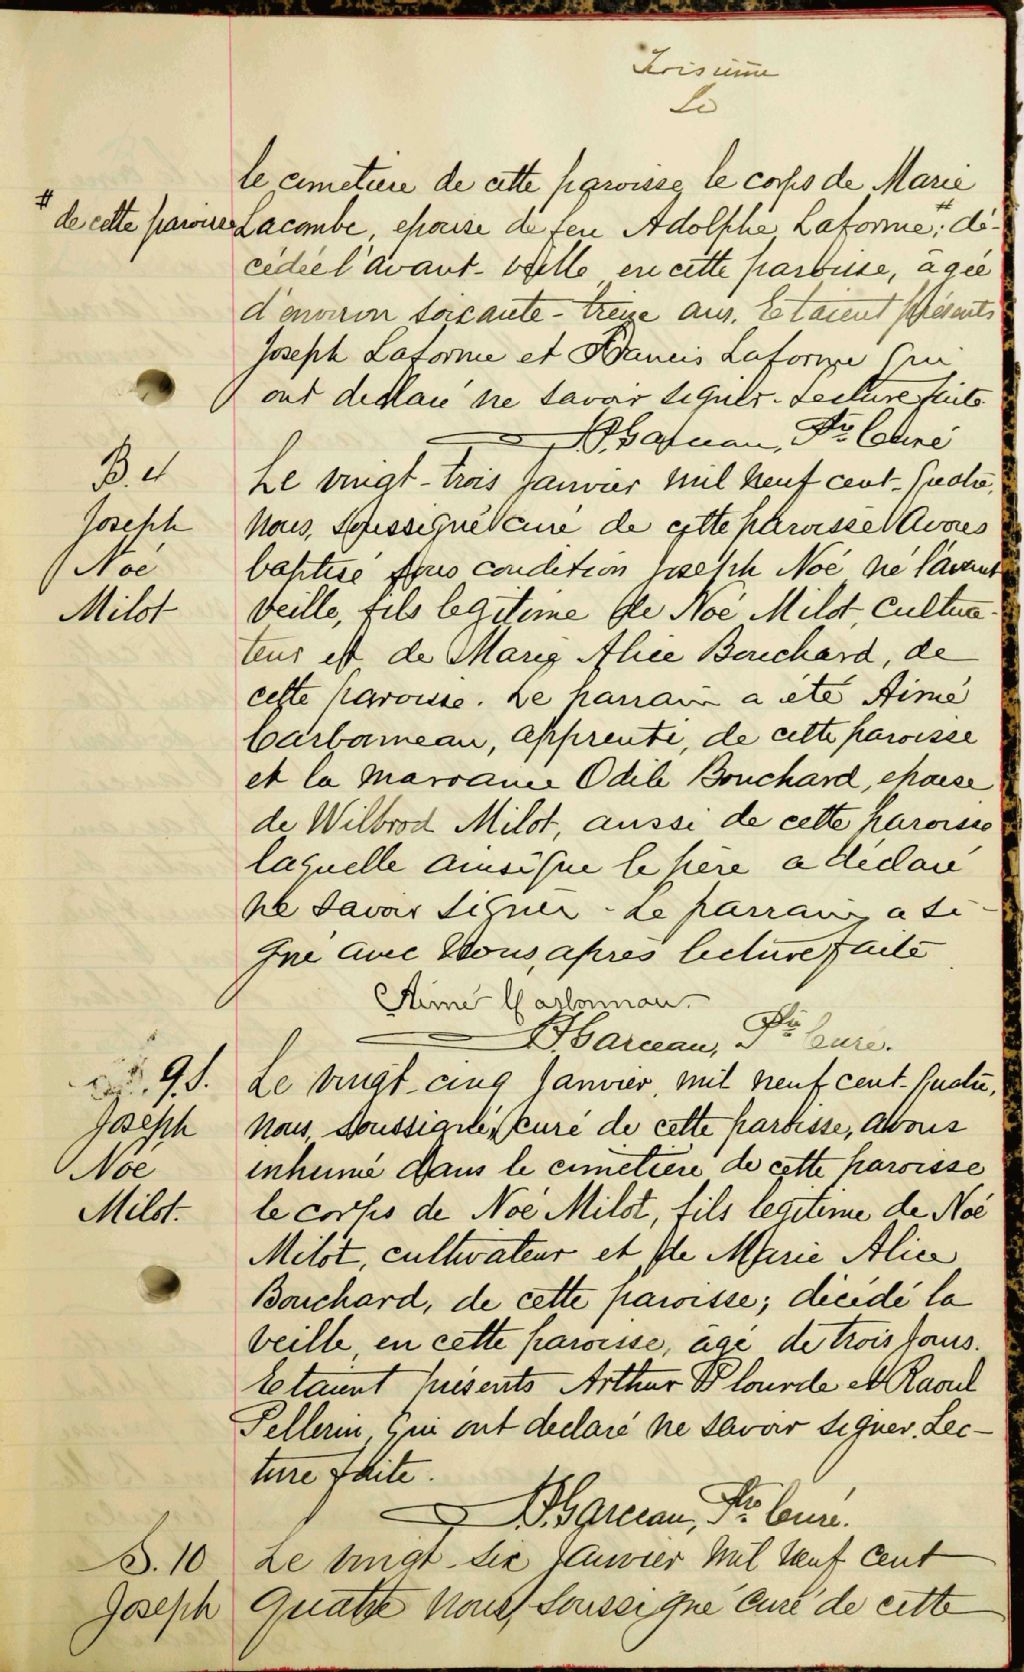 Troisième
le cimetiere de cette paroisse le corps de Marie
# de cette paroisse
Lacombe, epouse de feu Adolphe Laforme #; dé-
cédée l'avant-veille en cette paroisse, âgée
d'environ soixante-treize ans. Etaient présents
Joseph Laforme et Francis Laforme qui
ont declaré ne savoir signer. Lecture faite
Garceau, Ptre Curé
B. 4
Joseph
Noé
Milot
Le vingt-trois Janvier mil neuf cent-quatre,
nous, soussigné curé de cette paroisse avons
baptisé sous condition Joseph Noé né l'avant
veille, fils legitime de Noé Milot, cultiva-
teur et de Marie Alice Bouchard, de
cette paroisse. Le parrain a été Aimé
Carbonneau, apprenti, de cette paroisse
et la marraine Odile Bouchard, epouse
de Wilbrod Milot, aussi de cette paroisse
laquelle ainsi que le père a déclaré
ne savoir signer. Le parrain a si-
gné avec Nous, après lecture faite
Aimé Carbonneau
Garceau, Ptre Curé.
9. S.
Joseph
Noé
Milot.
Le vingt-cinq Janvier, mil neuf cent-quatre,
nous, soussigné, curé de cette paroisse, avons
inhumé dans le cimetiere de cette paroisse
le corps de Noé Milot, fils legitime de Noé
Milot, cultivateur et de Marie Alice
Bouchard, de cette paroisse; décédé la
veille, en cette paroisse, âgé de trois jours.
Etaient présents Arthur Plourde et Raoul
Pellerin, qui ont declaré ne savoir signer. Lec-
ture faite.
Garceau, Ptre Curé.
S. 10
Joseph
Le vingt-six Janvier mil neuf cent
quatre nous, soussigné curé de cette